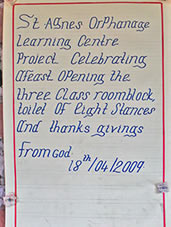 St Agnes Orphanage
Learning Centre
Project Celebrating
Afeast Opening the
three Class roomblock,
toilet Of Eight Stances
And thanks givings
from God.
18th/04/2009